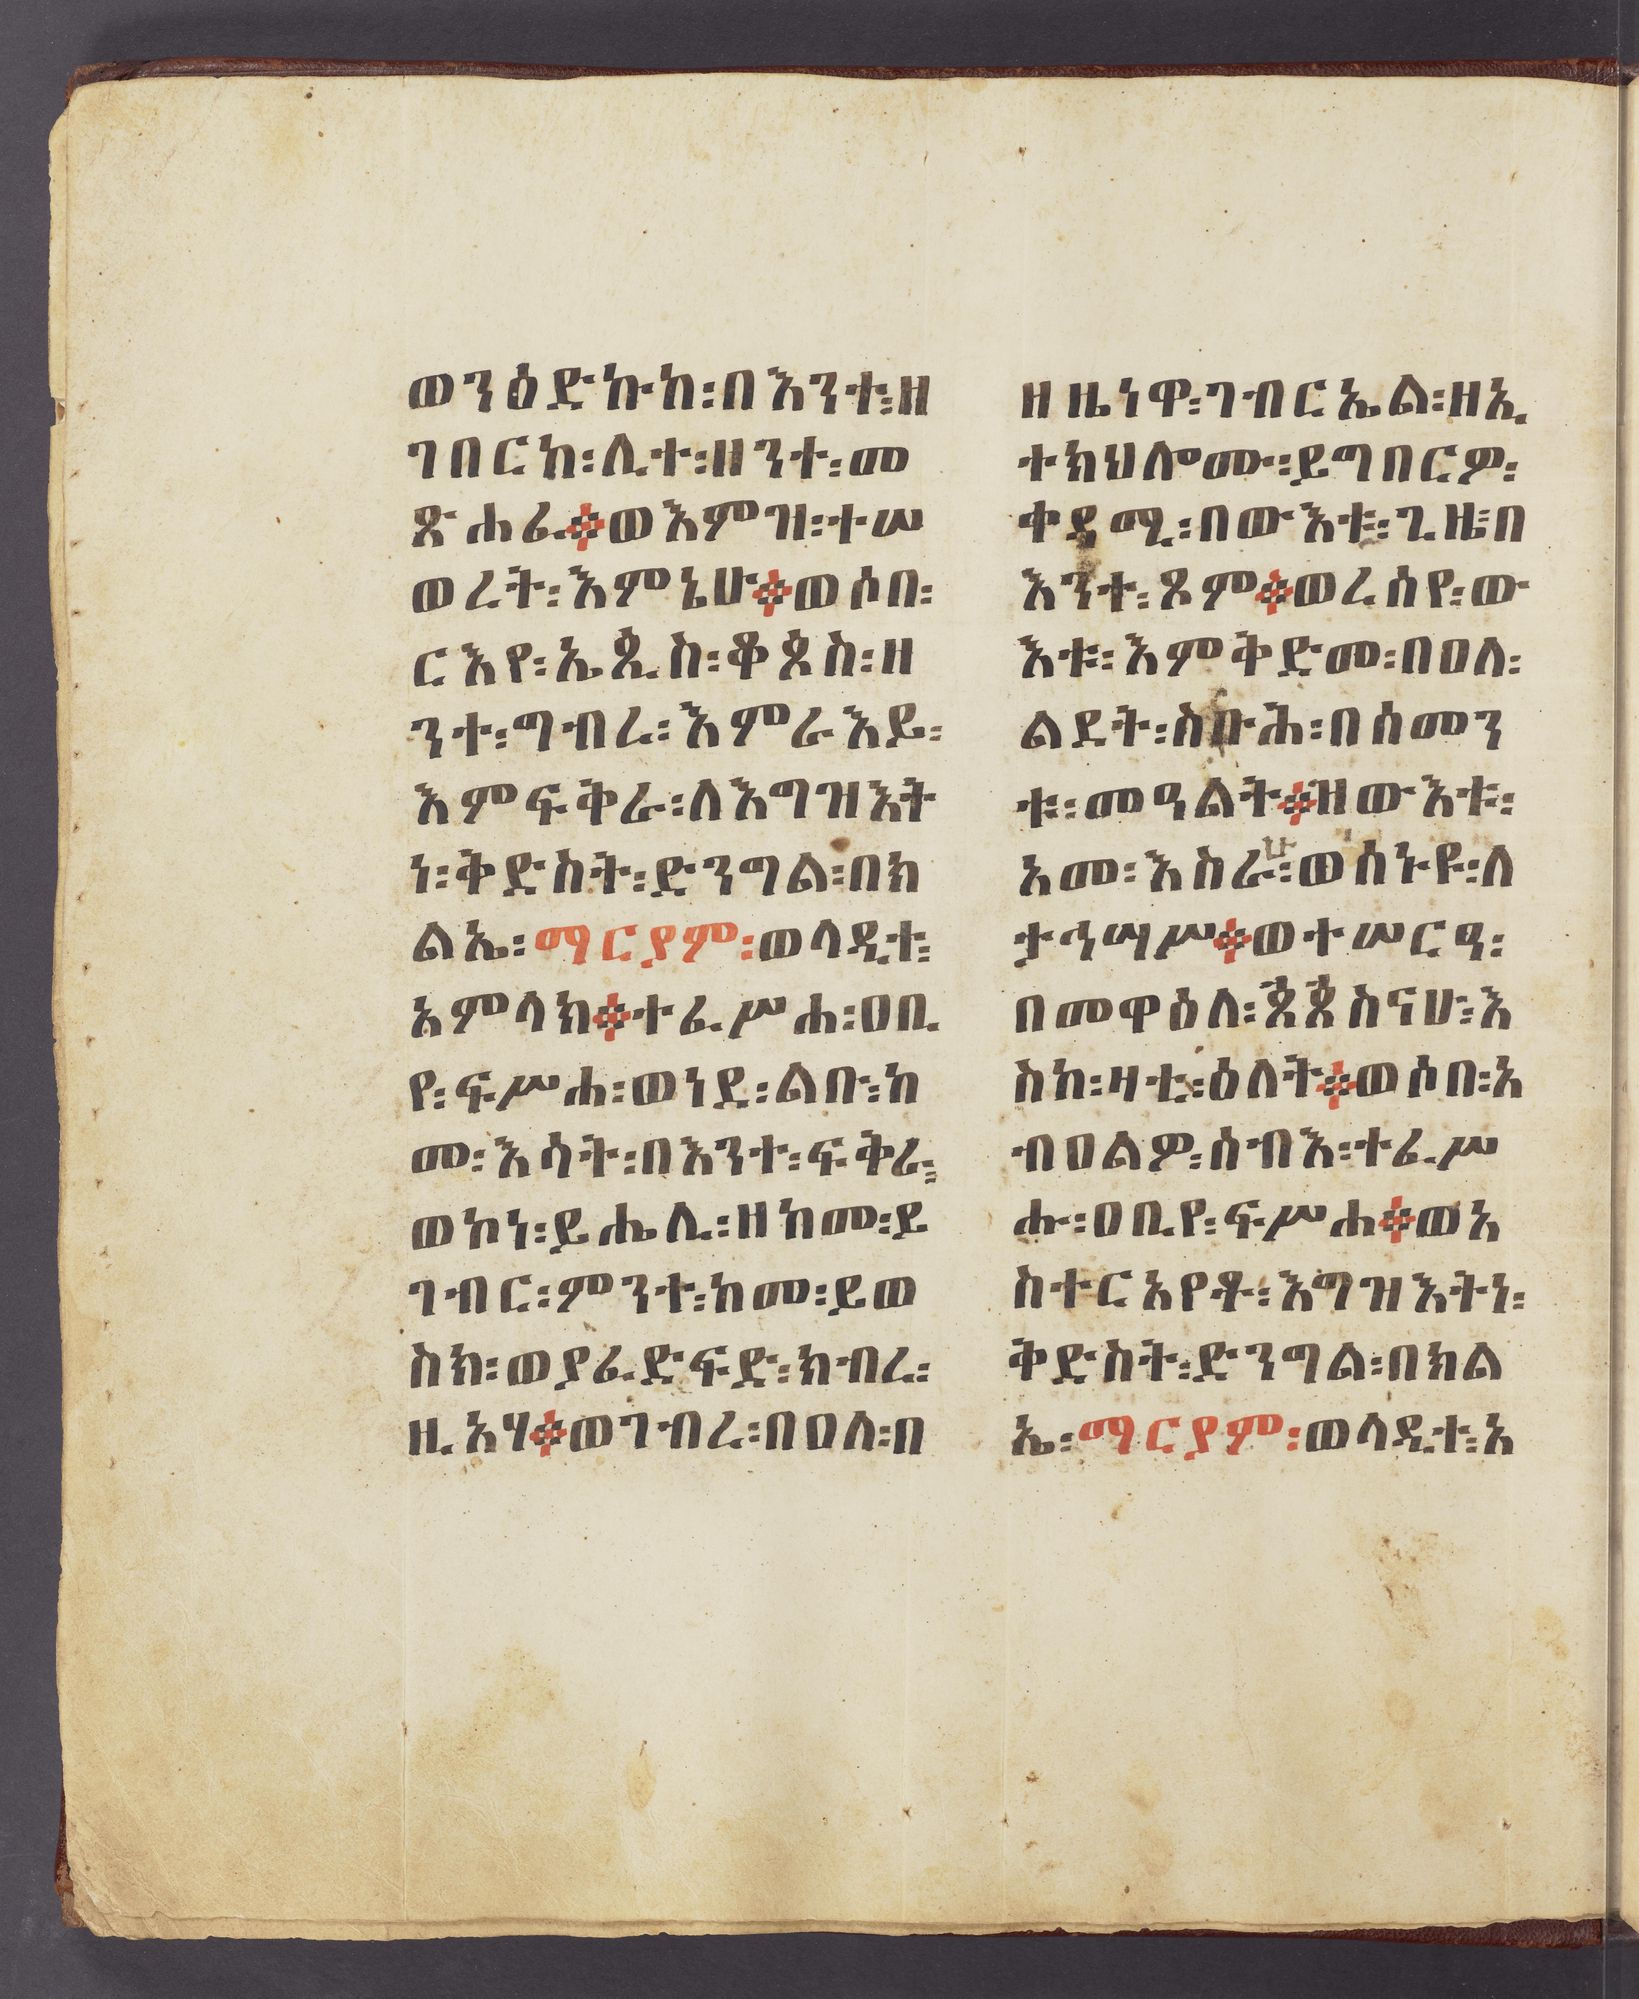 ወንዕድኩከ፡በእንተ፡ዘ
ገበርከ፡ሊተ፡ዘንተ፡መ
ጽሐፈ፨ወእምዝ፡ተሠ
ወረት፡እምኔሁ፨ወሶበ፡
ርእየ፡ኤጲስ፡ቆጶስ፡ዘ
ንተ፡ግብረ፡እምራእይ፡
እምፍቅራ፡ለእግዝእት
ነ፡ቅድስት፡ድንግል፡በክ
ልኤ፡ማርያም፡ወላዲተ፡
አምላክ፨ተፈሥሐ፡ዐቢ
የ፡ፍሥሐ፡ወነደ፡ልቡ፡ከ
መ፡እሳት፡በእንተ፡ፍቅራ፡
ወኮነ፡ይሔሊ፡ዘከመ፡ይ
ገብር፡ምንተ፡ከመ፡ይወ
ስክ፡ወያፈድፍድ፡ክብረ፡
ዚአሃ፨ወገብረ፡በዐለ፡በ
ዘዜነዋ፡ገብርኤል፡ዘኢ
ተክህሎሙ፡ይግበርዎ፡
ቀዳሚ፡በውእቱ፡ጊዜ፡በ
እንተ፡ጾም፨ወረሰየ፡ው
እቱ፡እምቅድመ፡በዐለ፡
ልደት፡ስቡሕ፡በሰመን
ቱ፡መዓልት፨ዝውእቱ፡
አመ፡እስራ፡ወሰኑዩ፡ለ
ታኅሣሥ፨ወተሠርዓ፡
በመዋዕለ፡ጳጳስናሁ፡እ
ስከ፡ዛቲ፡ዕለት፨ወሶበ፡አ
ብዐልዎ፡ሰብእ፡ተፈሥ
ሑ፡ዐቢየ፡ፍሥሐ፨ወአ
ስተርአየቶ፡እግዝእትነ፡
ቅድስት፡ድንግል፡በክል
ኤ፡ማርያም፡ወላዲተ፡አ